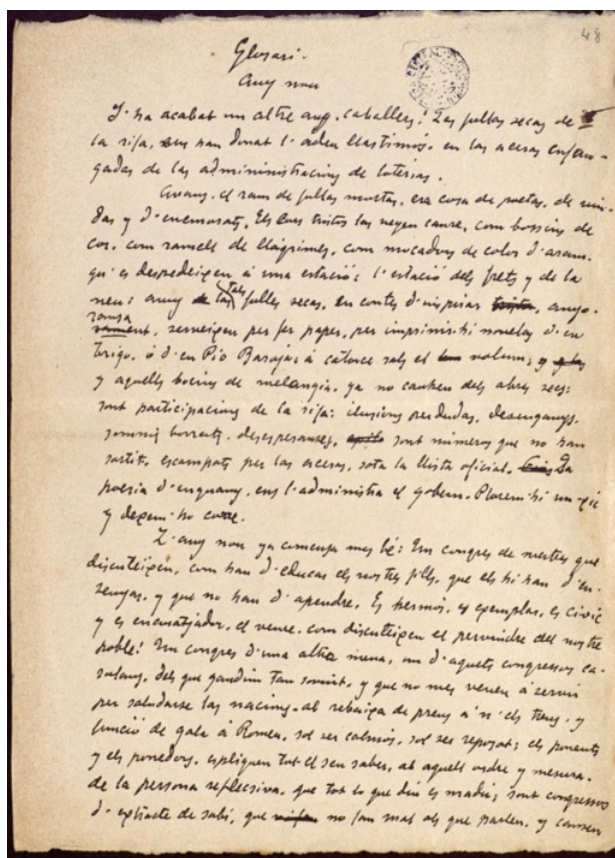 48
Glosari.
Any nou
S'ha acabat un altre any, caballers! Las fullas secas de
la rifa, ens han donat l'adeu llastimós, en las aceras enfan-
gadas de las admininistracions de loterias.
Avans, el ram de fullas mortas, era cosa de poetas, de viu-
das y d'enemorats. Els ulls tristos las veyen caure, com bossins de
cor, com ramell de llágrimes, com mocadors de color d'aram,
qu'es despedeixen á una estació; l'estació dels frets y de la
neu: auny las tals fulles secas, en contes d'inspirar anyo-
ransa, serveixen per fer paper, per imprimirhi novelas d'en
Trigo, ó d'en Pio Baroja, á catorce rals el volum; y
y aquells bocins de melangia, ya no cauhen dels abres secs:
sont participacions de la rifa: ilusions perdudas, desenganys,
somnis borrats, desesperanses, sont números que no han
sortit, escampats per las aceras, sota la llista oficial. La
poesia d'enguany, ens l'administra el gobern. Ploremhi un xic
y deixem-ho corre.
L'any nou ya comensa mes bé: Un congres de mestres que
discuteixen, com han d'educar els nostres fills, que els hi han d'en-
senyar, y que no han d'apendre. Es hermós, es exemplar, es civic
y es encoratjador, el veure, com discuteixen el pervindre del nostre
poble! Un congres d'una altra mena, un d'aquets congressos ca-
talans, dels que gaudim tan sovint, y que no mes venen á servir
per saludarse las nacions, al rebaixa de preus á n'els trens, y
funció de gala á Romea, sol ser calmós, sol ser reposat; els ponents
y els ponedors, expliquen tot el seu saber, ab aquell ordre y mesura,
de la persona reflecsiva, que tot lo que diu es madur; sont congressos
d'extracte de sabi, que no fan mal als que parlen, y causen